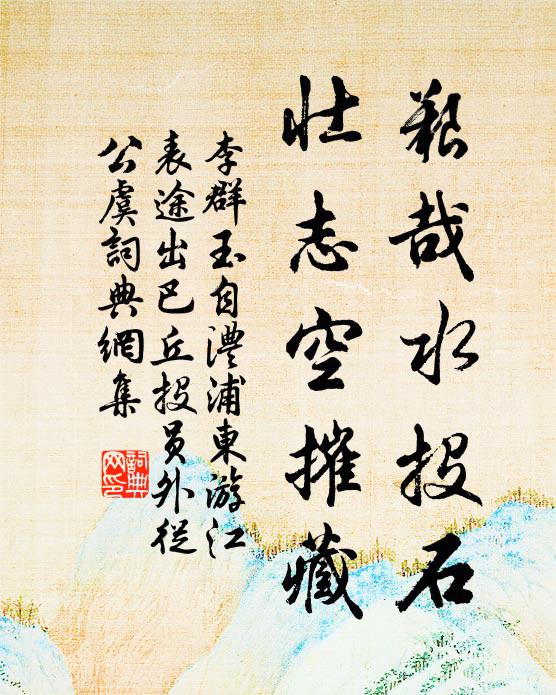 艱哉水投石
壮志空摧藏
李群玉自澧浦東游江
表途出巴丘投员外從
公虞詞典網集
詞典网印